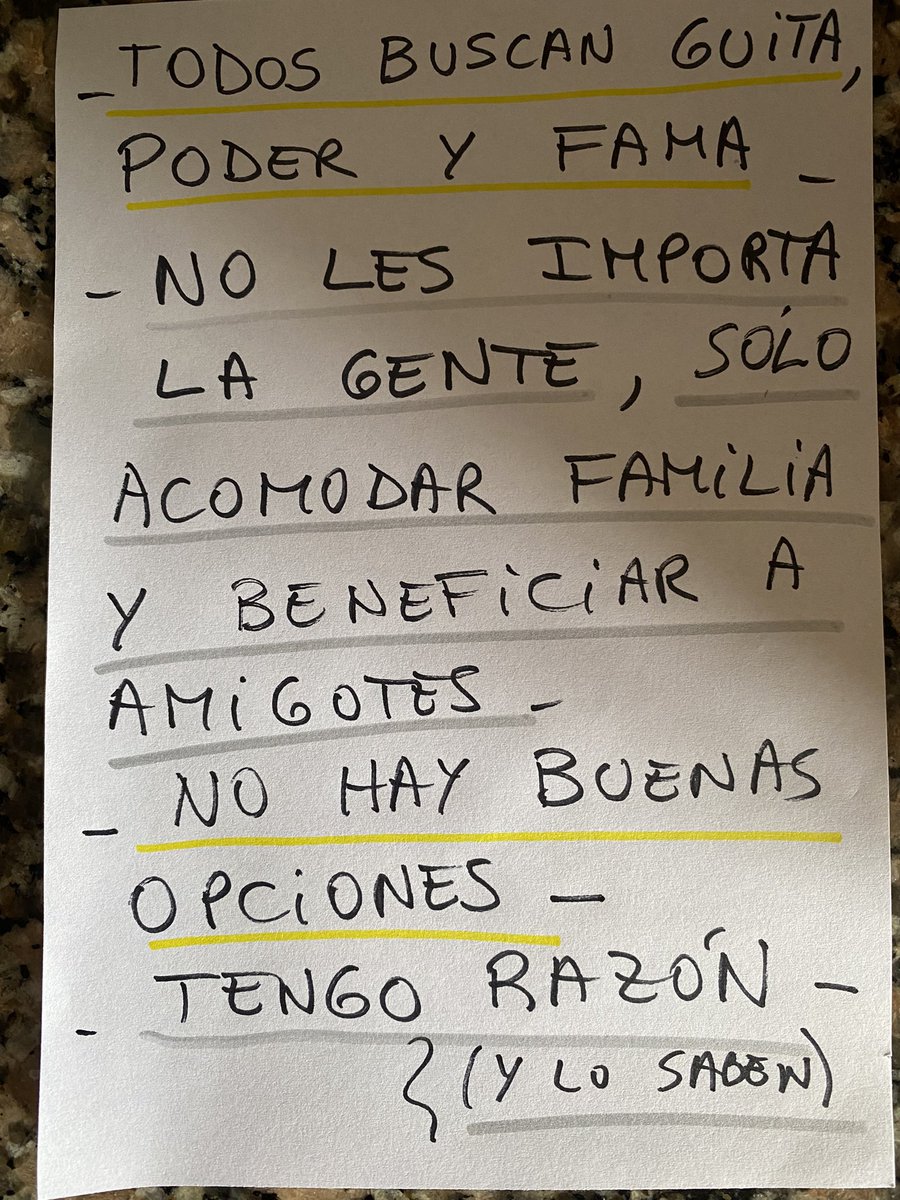 - TODOS BUSCAN GUITA,
PODER Y FAMA -
- NO LES IMPORTA
LA GENTE, SÓLO
ACOMODAR FAMILIA
Y BENEFICIAR A
AMIGOTES -
- NO HAY BUENAS
OPCIONES -
- TENGO RAZÓN -
(Y LO SABEN)